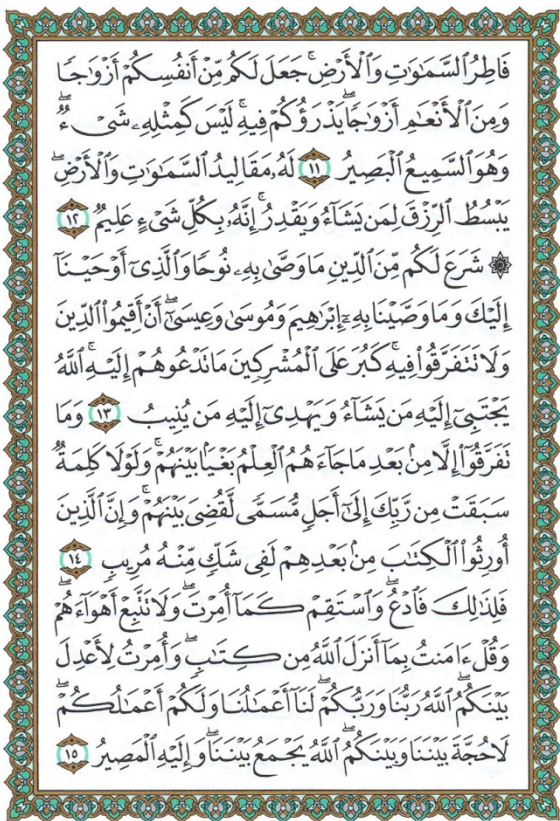 فَاطِرُ السَّمَٰوَٰتِ وَالْأَرْضِ ۚ جَعَلَ لَكُم مِّنْ أَنفُسِكُمْ أَزْوَٰجًا
وَمِنَ الْأَنْعَٰمِ أَزْوَٰجًا ۖ يَذْرَؤُكُمْ فِيهِ ۚ لَيْسَ كَمِثْلِهِۦ شَىْءٌ ۖ
وَهُوَ السَّمِيعُ الْبَصِيرُ ١١ لَهُۥ مَقَالِيدُ السَّمَٰوَٰتِ وَالْأَرْضِ ۖ
يَبْسُطُ الرِّزْقَ لِمَن يَشَآءُ وَيَقْدِرُ ۚ إِنَّهُۥ بِكُلِّ شَىْءٍ عَلِيمٌ ١٢
۞ شَرَعَ لَكُم مِّنَ الدِّينِ مَا وَصَّىٰ بِهِۦ نُوحًا وَالَّذِىٓ أَوْحَيْنَآ
إِلَيْكَ وَمَا وَصَّيْنَا بِهِۦٓ إِبْرَٰهِيمَ وَمُوسَىٰ وَعِيسَىٰٓ ۖ أَنْ أَقِيمُوا۟ الدِّينَ
وَلَا تَتَفَرَّقُوا۟ فِيهِ ۚ كَبُرَ عَلَى الْمُشْرِكِينَ مَا تَدْعُوهُمْ إِلَيْهِ ۚ اللَّهُ
يَجْتَبِىٓ إِلَيْهِ مَن يَشَآءُ وَيَهْدِىٓ إِلَيْهِ مَن يُنِيبُ ١٣ وَمَا
تَفَرَّقُوٓا۟ إِلَّا مِنۢ بَعْدِ مَا جَآءَهُمُ الْعِلْمُ بَغْيًۢا بَيْنَهُمْ ۚ وَلَوْلَا كَلِمَةٌ
سَبَقَتْ مِن رَّبِّكَ إِلَىٰٓ أَجَلٍ مُّسَمًّى لَّقُضِىَ بَيْنَهُمْ ۚ وَإِنَّ الَّذِينَ
أُورِثُوا۟ الْكِتَٰبَ مِنۢ بَعْدِهِمْ لَفِى شَكٍّ مِّنْهُ مُرِيبٍ ١٤
فَلِذَٰلِكَ فَادْعُ ۖ وَاسْتَقِمْ كَمَآ أُمِرْتَ ۖ وَلَا تَتَّبِعْ أَهْوَآءَهُمْ ۖ
وَقُلْ ءَامَنتُ بِمَآ أَنزَلَ اللَّهُ مِن كِتَٰبٍ ۖ وَأُمِرْتُ لِأَعْدِلَ
بَيْنَكُمُ ۖ اللَّهُ رَبُّنَا وَرَبُّكُمْ ۖ لَنَآ أَعْمَٰلُنَا وَلَكُمْ أَعْمَٰلُكُمْ ۖ
لَا حُجَّةَ بَيْنَنَا وَبَيْنَكُمُ ۖ اللَّهُ يَجْمَعُ بَيْنَنَا ۖ وَإِلَيْهِ الْمَصِيرُ ١٥